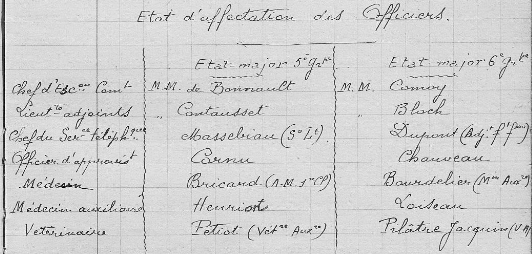 Etat d'affectation des Officiers.
Etat-major 5e gpe Etat major 6e gpe
Chef d'Escon Comt M.M. de Bonnault M.M. Comoy
Lieutts adjoints " Contausset " Bloch
Chef du Serce téléphque Massebiau (S/Lt) Dupont (Adjt ff)
Officier d'approvist Cornu Chauveau
Médecin Bricard (A.M. 1e Cl) Bourdelier (Min Auxre)
Médecin auxiliaire Henriot Loiseau
Vétérinaire Petiot (Vetre Auxre) Pilâtre Jacquin